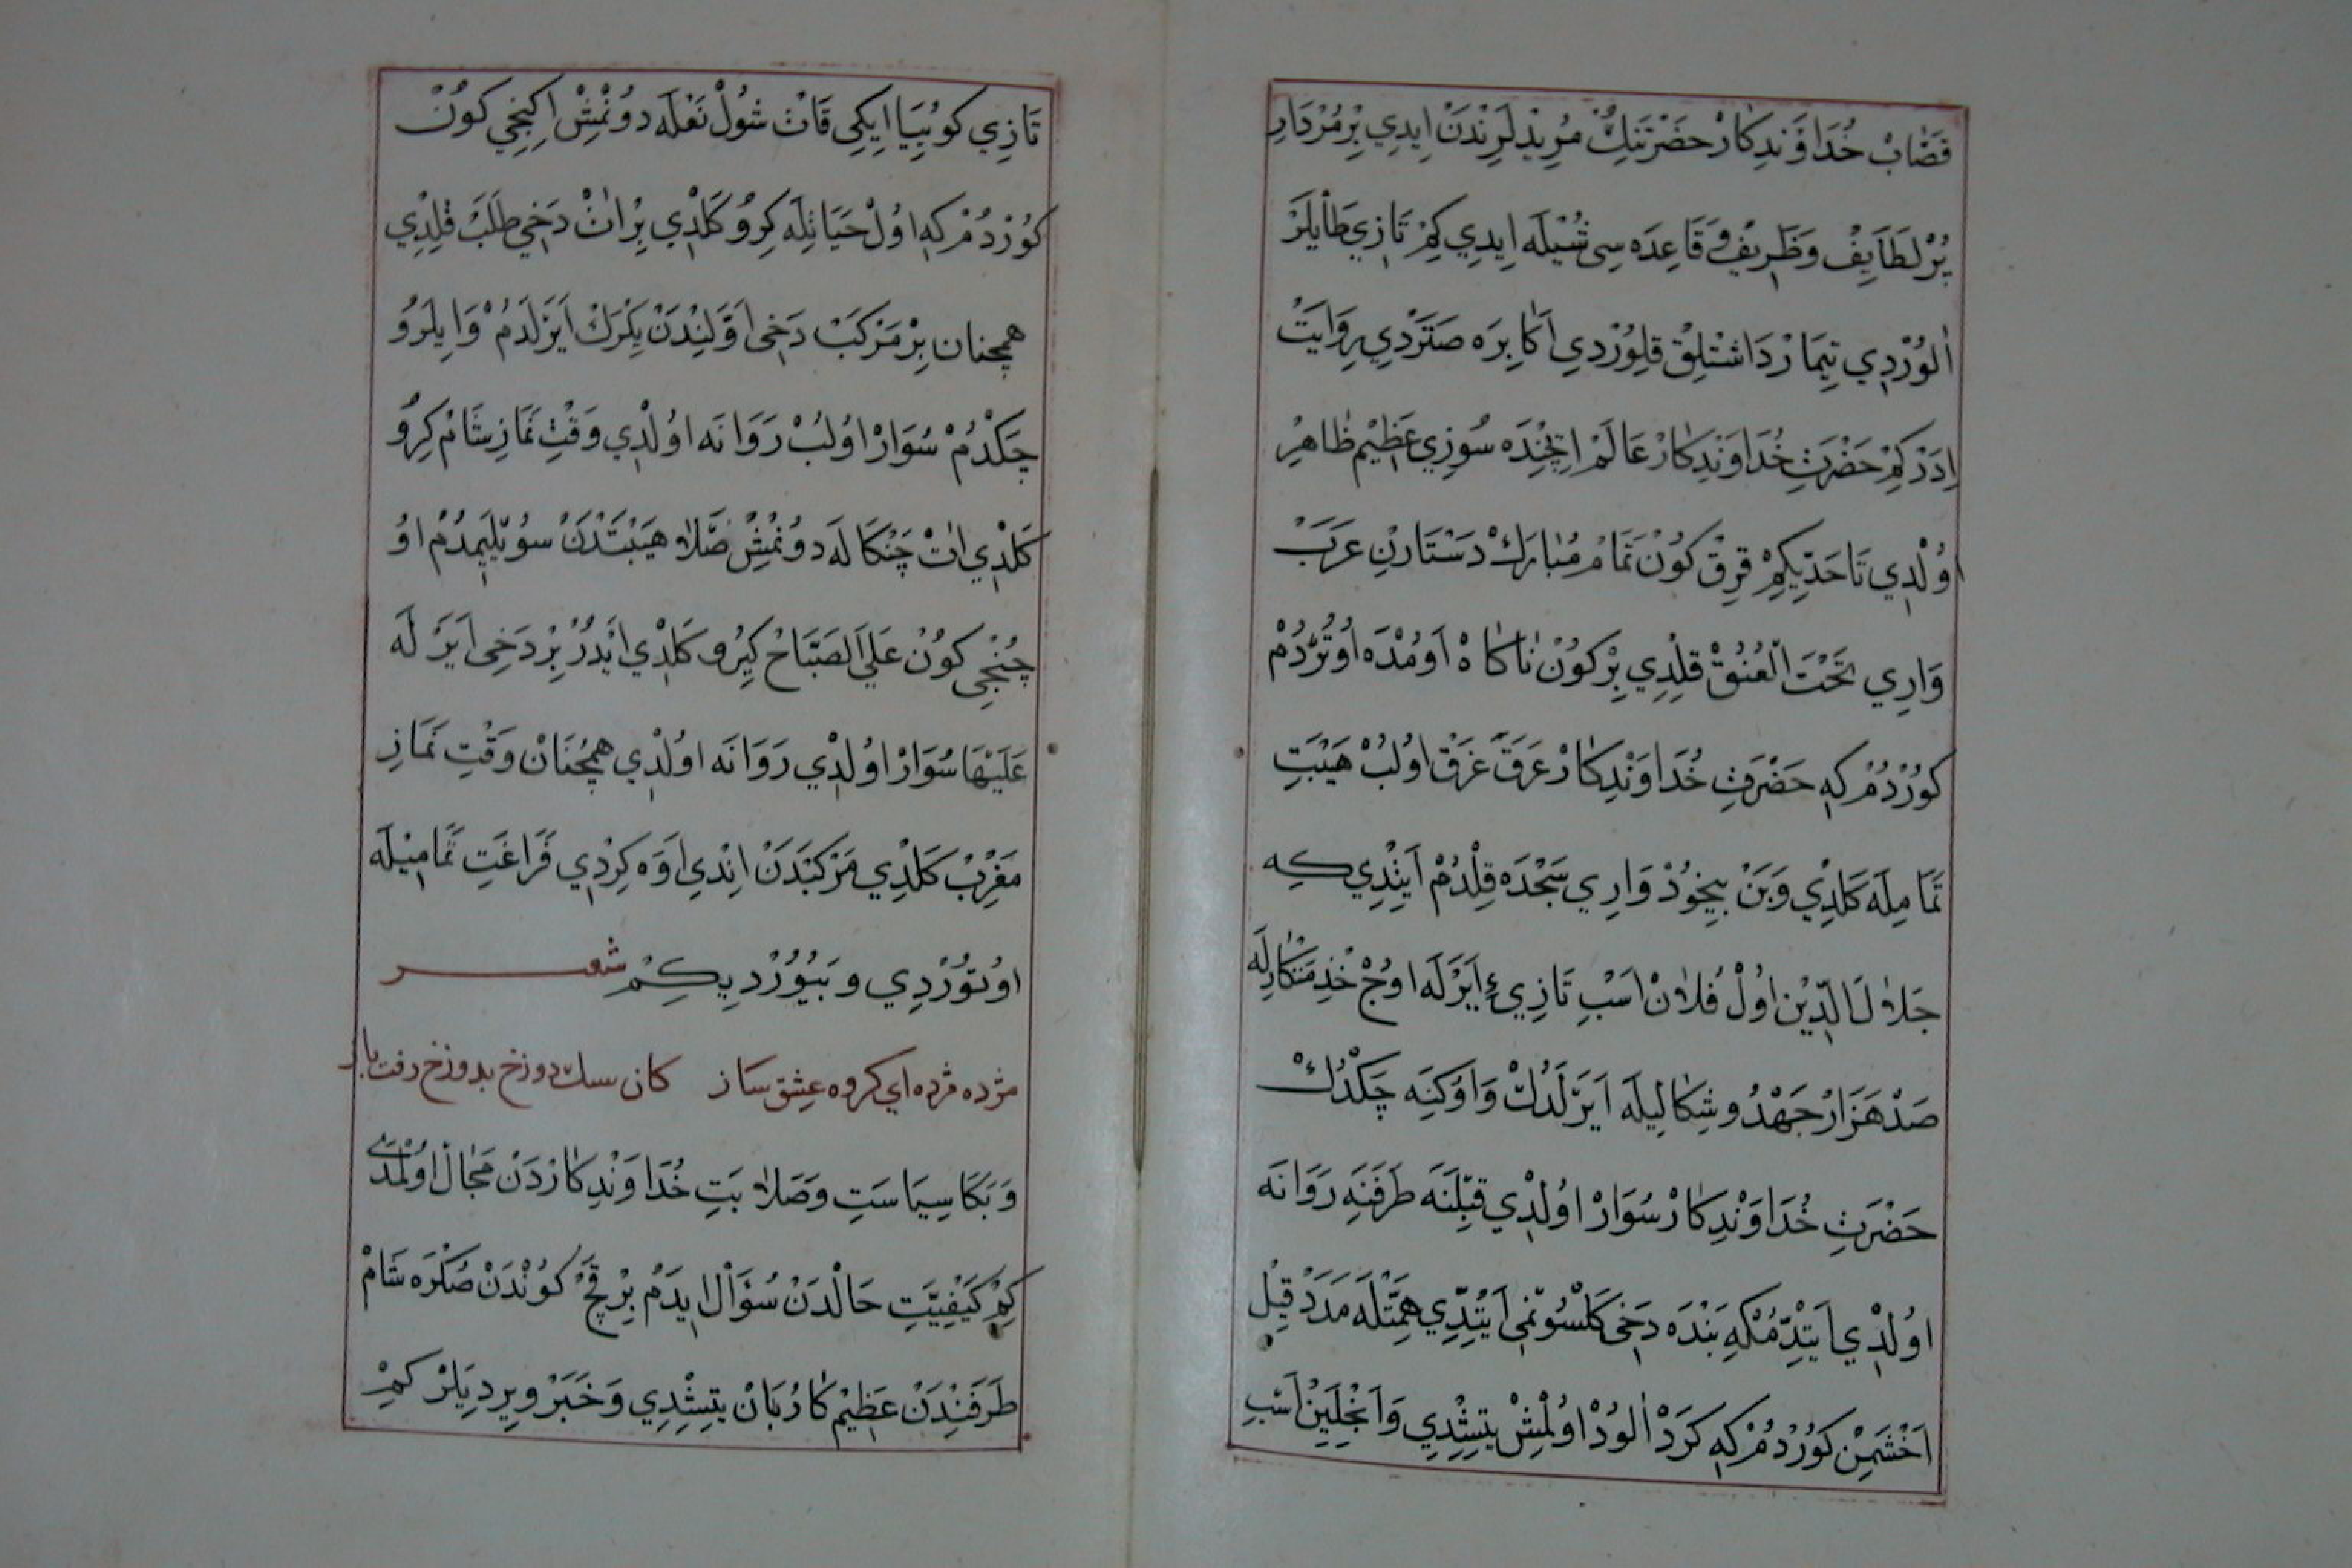 قَصَّابْ خُدَاوَندِكَارْ حَضْرَتِنِكْ مُرِيدْلَرِنْدَنْ اِيدِي بِرْ مُرْدَارِ
پُرْ لَطَايِفْ وَظَرِيفْ وَقَاعِدَه سِى شُيْلَه اِيدِي كِمْ تَازِي طَايْلَرْ
اَلُورْدِي تِيمَارْ دَاشْتْلِقْ قِلُورْدِي اَكَابِرَه صَتَرْدِي رِوَايَتْ
اِدَرْ كِمْ حَضْرَتِ خُدَاوَنْدِكَارْ عَالَمْ اِچِنْدَه سُوزِي عَظِيمْ ظَاهِرْ
اوُلْدِي تَا حَدِّيكِمْ قِرِقْ كُونْ تَمَامْ مُبَارَكْ دَسْتَارِنْ عَرَبْ
وَارِي تَحْتَ الْعُنُقْ قِلِدِي بِرْ كُونْ نَاكَاهْ اَوُمْدَه اوُتُرْدُمْ
كُورْدُمْ كِه حَضْرَتِ خُدَاوَنْدِكَارْ عَرَقَ غَرَقْ اوُلُبْ هَيْبَتِ
تَمَامِلَه كَلْدِي وَبَنْ بِيخُودْ وَارِي سَجْدَه قِلْدُمْ اَيِتْدِي كِه
جَلَالَ الدِّيْن اوُلْ فُلَانْ اَسْبِ تَازِيءِ اَيَرْلَه اوُچْ خُذِمَتْكَارِلَه
صَدْ هَزَارْ جَهْدُ وشِكَالِيلَه اَيَرْلَدُكْ وَاَوُكِنَه چَكْدُكْ
حَضْرَتِ خُدَاوَنْدِكَارْ سُوَارْ اوُلْدِي قِبْلَنَه طَرَفَنَه رَوَانَه
اوُلْدِي اَيِتْدُمْكِه بَنْدَه دَخِي كَلْسُونْمِى اَيِتْدِي هِمَّتْلَه مَدَدْ قِيْل
اَخْشَمِنْ كُورْدُمْ كِه كَرَدْ اَلُودْ اوُلْمِشْ يِتِشْدِي وَاَنْجِلَيِنْ اَسْبِ
تَازِي كُوبِيَا اِيكِى قَاتْ شُولْ نَعْلَه دوُنْمِشْ اِكِنْجِي كُونْ
كُورْدُمْ كِه اوُلْ حَيَاتِلَه كِرُو كَلْدِي بِرْ اَتْ دَخِي طَلَبْ قِلِدِي
همچنان بِرْ مَرْكَبْ دَخِى اَوَّلِنْدَنْ يِكْرَكْ اَيَرْلَدَمْ وَاِيلَرُو
چَكْدُمْ سُوَارْ اوُلُبْ رَوَانَه اوُلْدِي وَقْتِ نَمَازِ شَامْ كِرُو
كَلْدِي اَتْ چَنْكَالَه دوُنْمِشْ صَلَا هَيْبَتَدَنْ سُويْلَيِمِدُمْ اوُ
چُنْجِى كُونْ عَلَي الصَّبَاحْ كِيْرُو كَلْدِي اَيْدُرْ بِرْ دَخِى اَيَرْلَه
عَلَيْهَا سُوَارْ اوُلْدِي رَوَانَه اوُلْدِي همْچُنَانْ وَقْتِ نَمَازِ
مَغْرِبْ كَلْدِي مَرْكَبْدَنْ اِنْدِي اَوَه كِرْدِي فَرَاغَتِ تَمَامِيْلَه
اوُتوُرْدِي وبَيُوُرْدِيكِمْ شعر
مژده مژده اي كروه عِشق سَاز كان سك دوزخ بدوزخ رفت باز
وَبَكَا سِيَاسَتِ وَصَلَابَتِ خُدَاوَنْدِكَارْدَنْ مَجَالْ اوُلْمَدَى
كِمْ كَيْفِيَّتِ حَالْدَنْ سُؤَالْ اِيدَمْ بِرْ قَچْ كُونْدَنْ صُكْرَه شَامْ
طَرَفَنْدَنْ عَظِيْمْ كَارُبَانْ يِتِشْدِي وَخَبَرْ وِيرِدِيلَرْ كِمْ